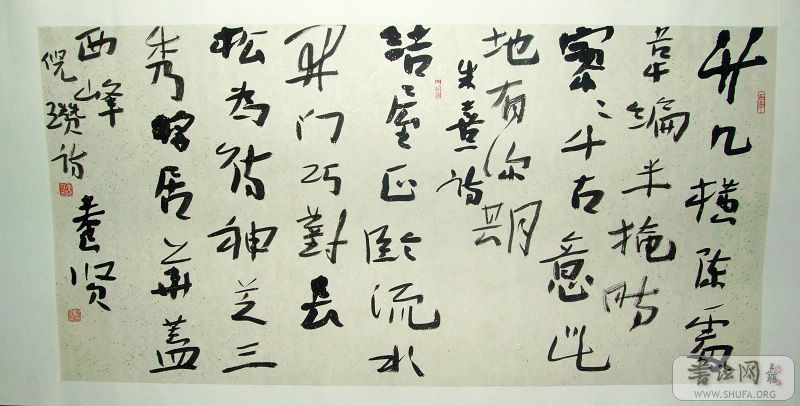 竹几横陈处
韦编半掩时
寥々千古意此
地有深期
朱熹诗
结庐正临流水
开门巧对长
松为待神芝三
秀移居华盖
西峰
倪瓒诗
贤
书法网
WWW.SHUFA.ORG